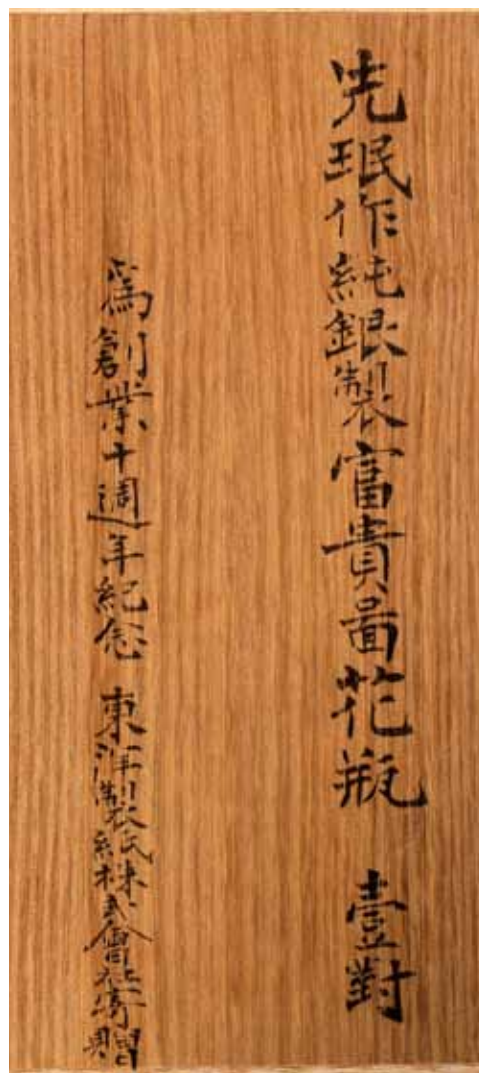 光珉作純銀製富貴啚花瓶 壹對
爲創業十週年紀念 東洋製紙株式會社寄贈